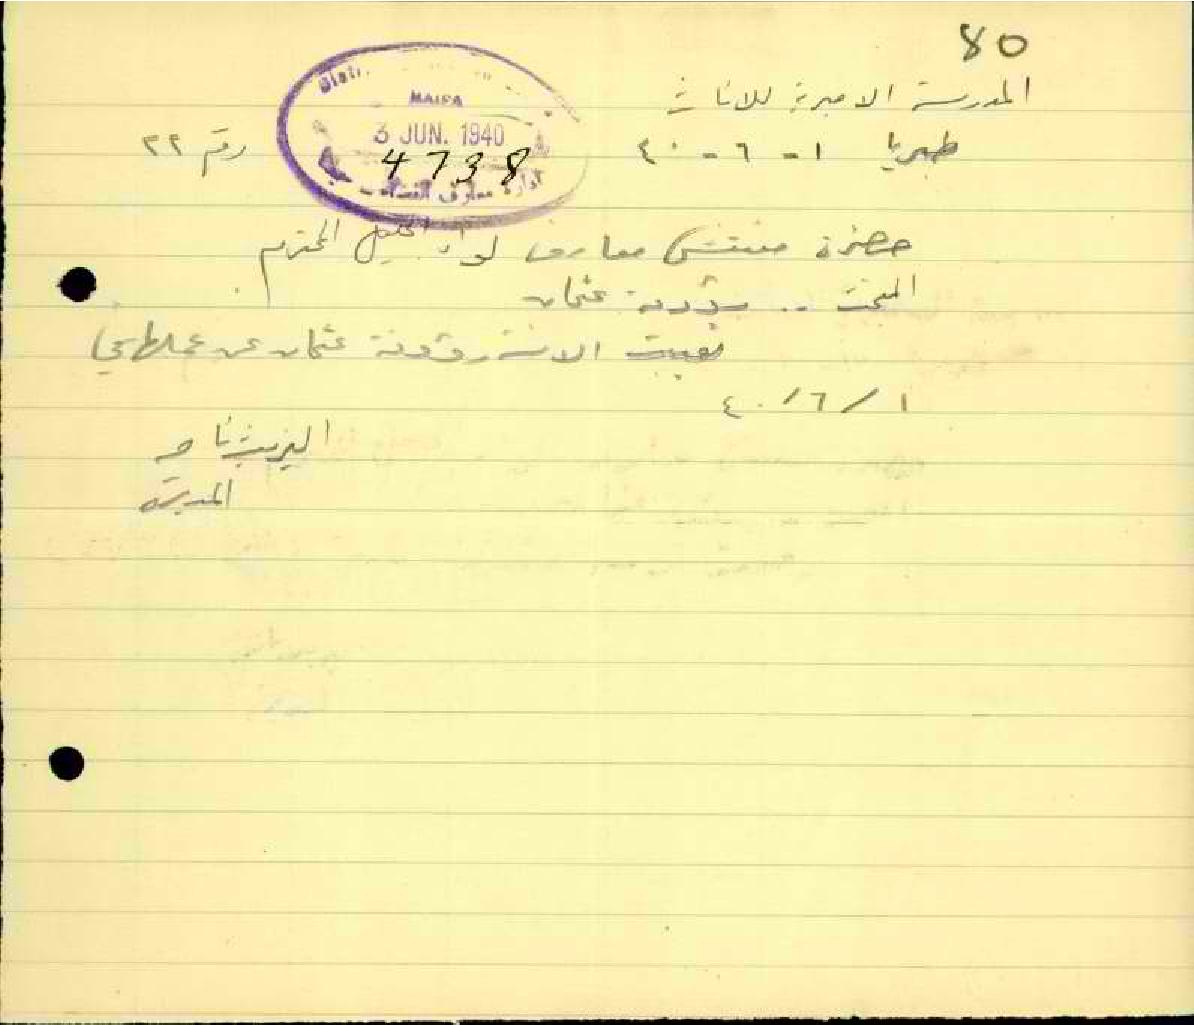 80
المدرسة الاميرية للاناث
طبريا ١ - ٦ - ٤٠
رقم ٢٢
HAIFA
3 JUN. 1940
4738
ادارة معارف
حضرة مفتش معارف لواء الجليل المحترم
المبحث .. عثمان
تغيبت الانسة رقية عثمان عن عملها في
١ / ٦ / ٤٠
المديرة